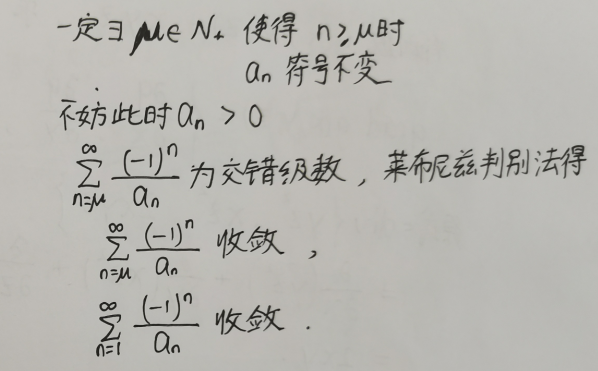 一定∃ μ∈N₊ 使得 n≥μ时
aₙ 符号不变
不妨此时 aₙ > 0
∑_{n=μ}^{∞} (-1)ⁿ/aₙ 为交错级数，莱布尼兹判别法得
∑_{n=μ}^{∞} (-1)ⁿ/aₙ 收敛，
∑_{n=1}^{∞} (-1)ⁿ/aₙ 收敛.